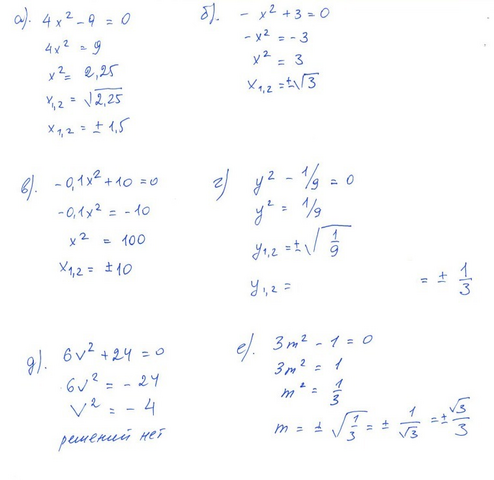 а). 4x² - 9 = 0
4x² = 9
x² = 2,25
x₁,₂ = √2,25
x₁,₂ = ± 1,5
б). - x² + 3 = 0
-x² = -3
x² = 3
x₁,₂ = ±√3
в). -0,1x² + 10 = 0
-0,1x² = -10
x² = 100
x₁,₂ = ±10
г) y² - 1/9 = 0
y² = 1/9
y₁,₂ = ±√(1/9)
y₁,₂ = = ± 1/3
д). 6v² + 24 = 0
6v² = - 24
v² = - 4
решений нет
е). 3m² - 1 = 0
3m² = 1
m² = 1/3
m = ± √(1/3) = ± 1/√3 = ± √3/3